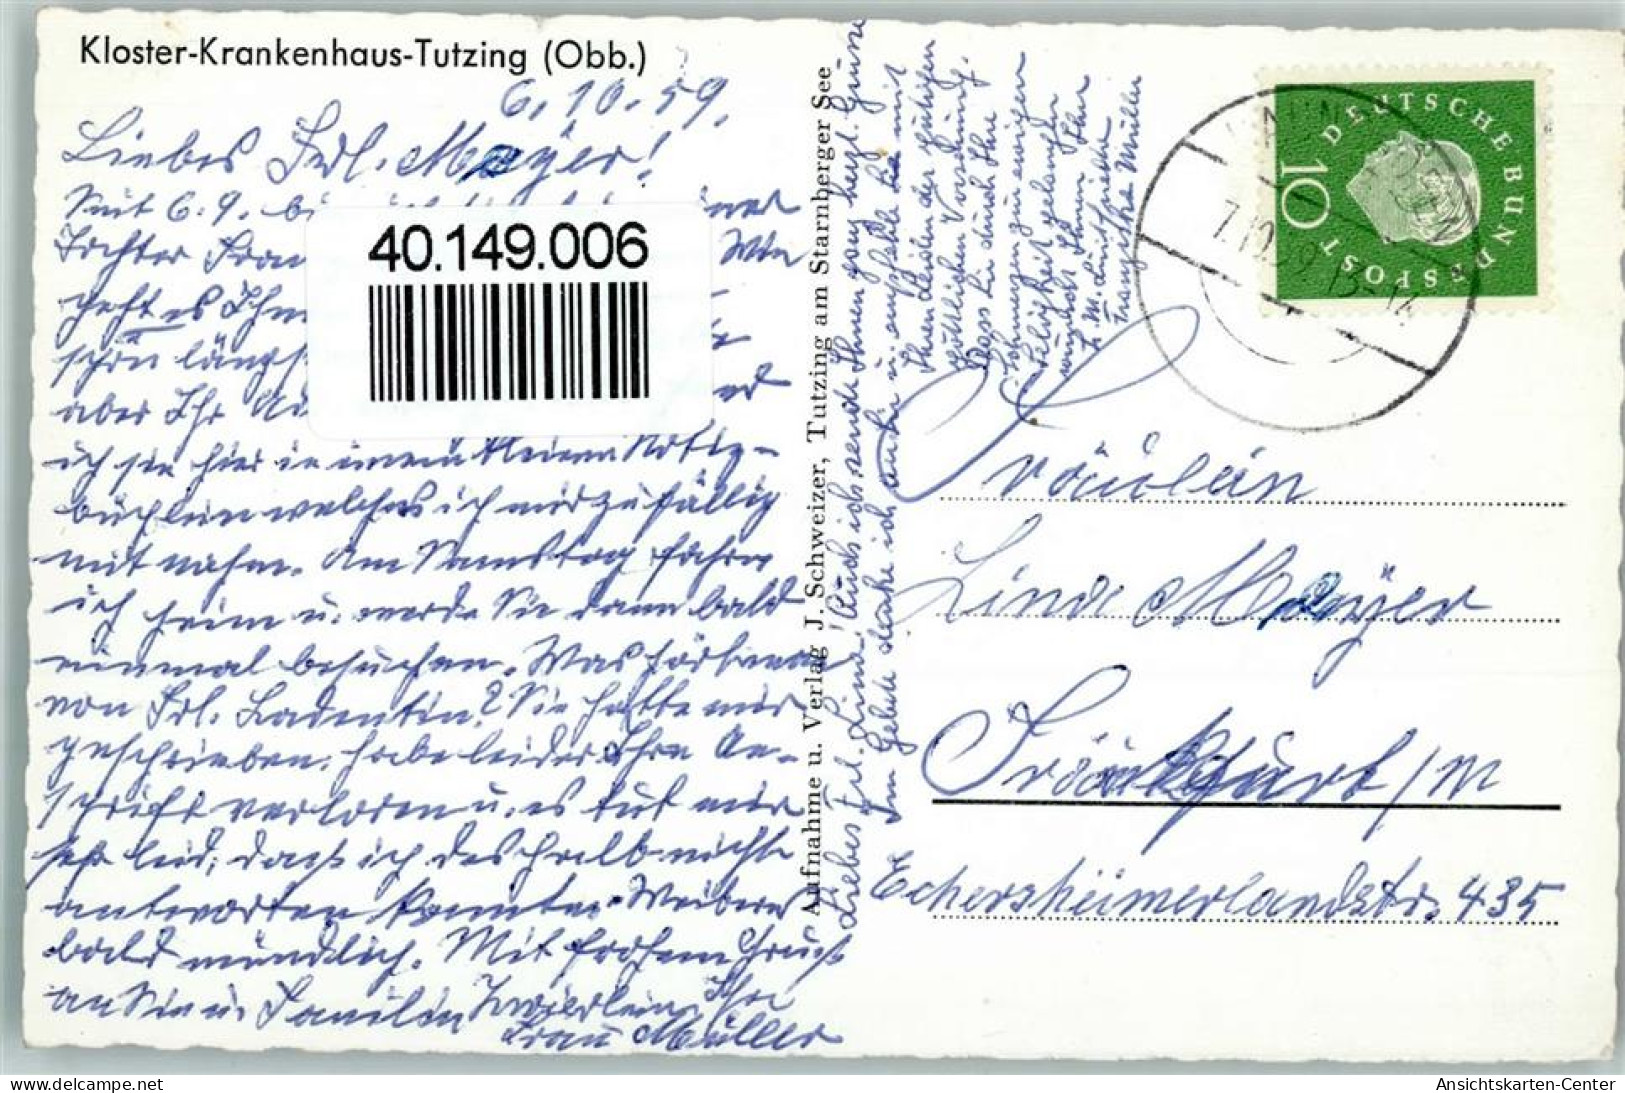 Kloster-Krankenhaus-Tutzing (Obb.)
6.10.59.
Liebes Frl. Mayer!
Seit 6.9. bin
Tochter Frau Wie
geht es Ihn
schon längs
aber Ihr
ich sie hier in einem kleinen Notiz-
büchlein welches ich mir zufällig
mit nahm. Am Samstag fahre
ich heim u. werde Sie dann bald
einmal besuchen. Was hört man
von Frl. Ladentin? Sie hatte mir
geschrieben, habe leider Ihre An-
schrift verloren u. es tut mir
sehr leid, dass ich deshalb nicht
antworten konnte. Weiteres
bald mündlich. Mit frohem Gruß
an Sie u. Familie Ihre
Frau Müller
40.149.006
Aufnahme u. Verlag J. Schweizer, Tutzing am Starnberger See
Liebes Frl. Lina! Auch ich sende Ihnen ganz herzl. Grüsse
Im Gebete denke ich an Sie u. empfehle Sie mit
Ihren Leiden der gütigen
göttlichen Vorsehung,
dass Sie durch Ihre
Schmerzen zur ewigen
Seligkeit gelangen
wünscht Ihnen Ihre
Franziska Müller
DEUTSCHE BUNDESPOST
10
7.10.59.13-14
Fräulein
Lina Mayer
Frankfurt/M
Echersheimerlandstr. 435
delcampe.net
Ansichtskarten-Center